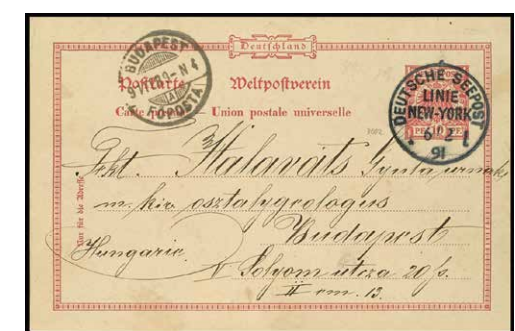 Deutschland
Postkarte Weltpostverein
Carte postale Union postale universelle
BUDAPEST
FŐPOSTA
DEUTSCHE SEEPOST
LINIE
NEW-YORK
6 2
91
Nur für die Adresse
Halaváts Gyula urnak
m. kir. osztálygeologus
Budapest
Hungarie.
V Solyom utcza 20/s.
II em. 13.